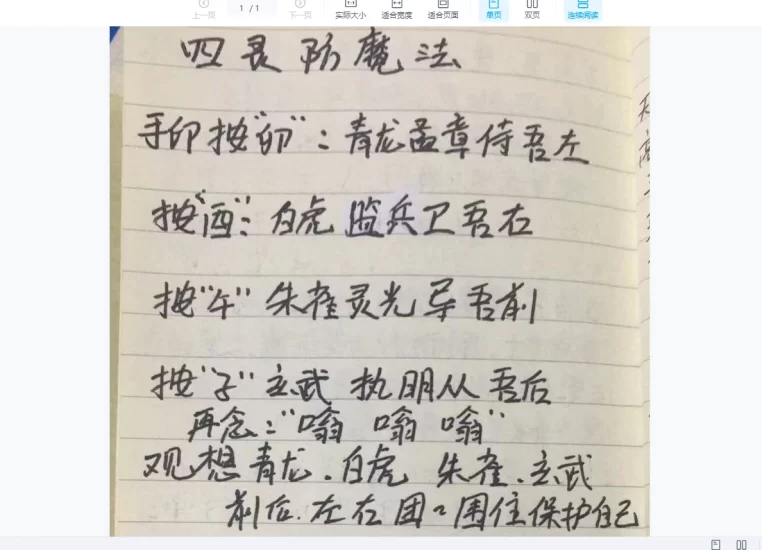 上一页
1 / 1
下一页
实际大小
适合宽度
适合页面
单页
双页
连续阅读
四灵防魔法
手印按“卯”：青龙孟章侍吾左
按“酉”：白虎监兵卫吾右
按“午” 朱雀灵光导吾前
按“子” 玄武 执明从吾后
再念：“嗡 嗡 嗡”
观想青龙、白虎 朱雀、玄武
前后、左右团团围住保护自己